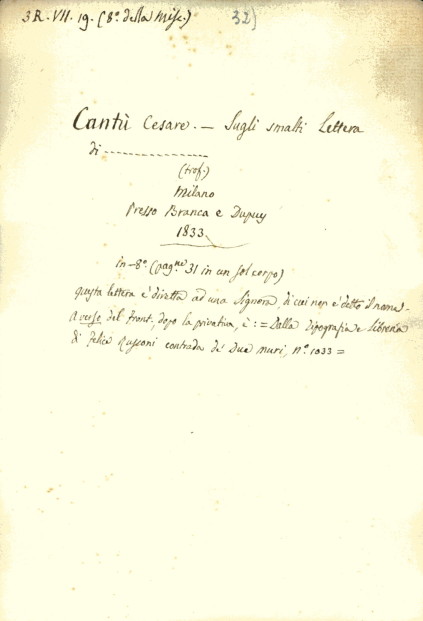 3 R. VII. 19. (8º. della Misc.)
32)
Cantù Cesare. — Sugli smalti Lettera
di ---------------
(trof.)
Milano
Presso Branca e Dupuy
1833
in-8º. (pag.ne 31 in un sol corpo)
questa lettera è diretta ad una Signora, di cui non è detto il nome.
A verso del front., dopo la privativa, è: = Dalla Tipografia e Libreria
di Felice Rusconi contrada de' Due muri, nº. 1033 =